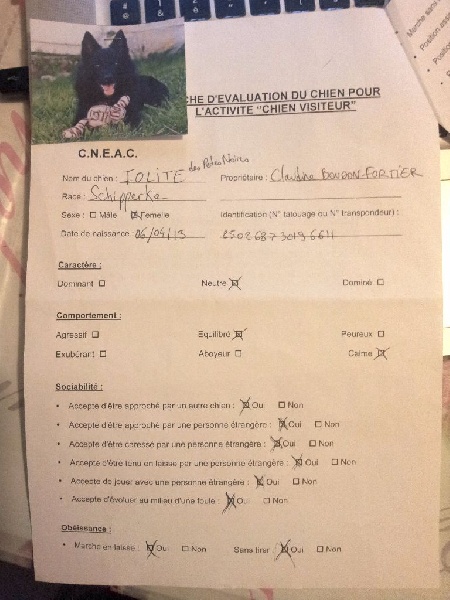 CHE D'EVALUATION DU CHIEN POUR
L'ACTIVITE "CHIEN VISITEUR"
C.N.E.A.C.
Nom du chien : IOLITE des Pôles Noirs Propriétaire : Claudine BOURON-FORTIER
Race : Schipperke
Sexe : ☐ Mâle ☒ Femelle Identification (N° tatouage ou N° transpondeur) :
Date de naissance 06/04/13
Caractère :
Dominant ☐ Neutre ☒ Dominé ☐
Comportement :
Agressif ☐ Equilibré ☒ Peureux ☐
Exubérant ☐ Aboyeur ☐ Calme ☒
Sociabilité :
• Accepte d'être approché par un autre chien : ☒ Oui ☐ Non
• Accepte d'être approché par une personne étrangère : ☒ Oui ☐ Non
• Accepte d'être caressé par une personne étrangère : ☒ Oui ☐ Non
• Accepte d'être tenu en laisse par une personne étrangère : ☒ Oui ☐ Non
• Accepte de jouer avec une personne étrangère : ☒ Oui ☐ Non
• Accepte d'évoluer au milieu d'une foule : ☒ Oui ☐ Non
Obéissance :
• Marche en laisse : ☒ Oui ☐ Non Sans tirer ☒ Oui ☐ Non
Marche sans
• Position